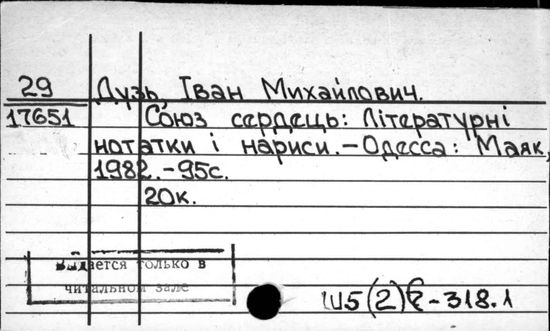 29 Дузь, Іван Михайлович.
17651 Союз сердець: Літературні
нотатки і нариси.-Одесса: Маяк,
1982.-95с.
20к.
Выдается только в
читальном зале
Ш5(2)2-318.1